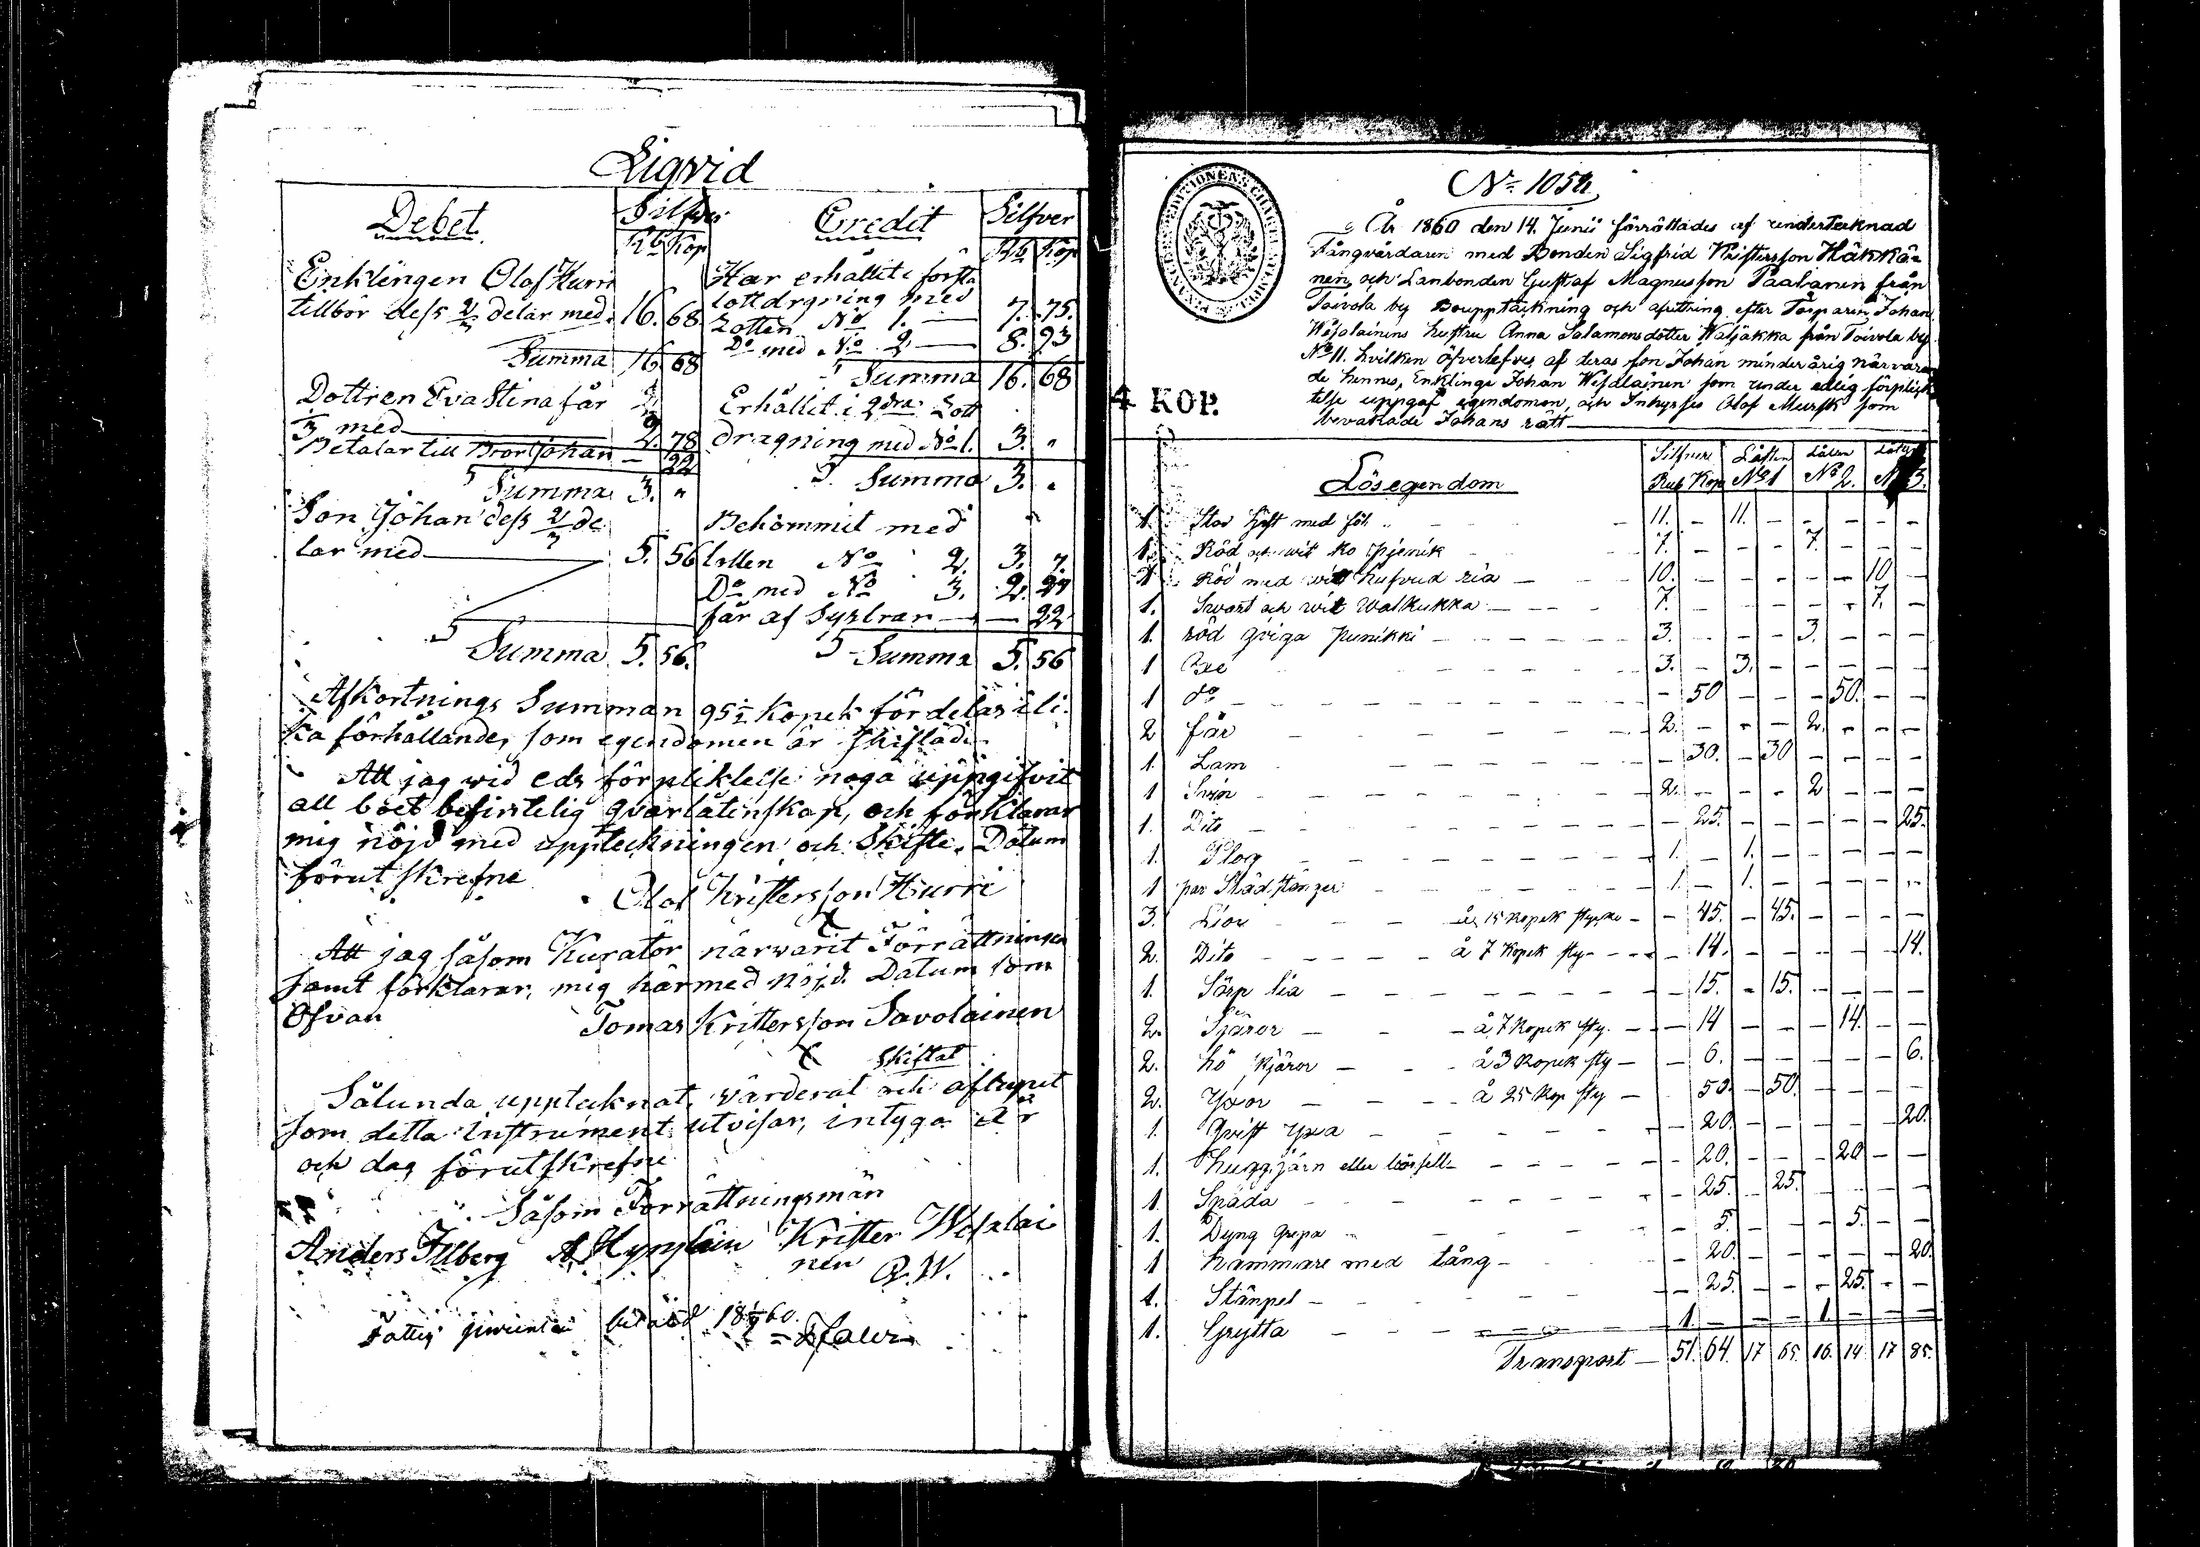 Liqvid
Debet. Silfver Credit Silfver
Rb Kop Rb Kop
Enklingen Olof Hurri Har erhållit i första
tillhör dess 2/3 delar med. 16. 68 lottdrgning med
Lotten No 1. — 7. 75.
Do med No 2. — 8. 93
Summa 16 68 Summa 16. 68
Dottren Eva Stina får Erhållit i 2dra Lott
med 2. 78 dragning med No 1. 3. "
Betalar till Bror Johan — 22
Summa 3. " Summa 3. "
Son Johan dess 2/7 de Bekommit med
lar med — 5. 56 lotten No 2. 3. 7.
Do med No 3. 2. 27
får af Systran — — 22
Summa 5. 56. Summa 5. 56
Afkortnings Summan 95 1/2 Kopek fördelas i li-
ka förhållande, som egendomen är skiftad.
Att jag wid eds förpliktelse noga uppgifvit
all boet befintelig qvarlåtenskap, och förklarar
mig nöjd med uppteckningen och Skifte. Datum
förut skrefne
Olof Kristersson Hurri
X
Att jag såsom Kurator närwarit Förrättningen
samt förklarar, mig härmed nöjd. Datum som
Ofvan Tomas Kristersson Savolainen
X skiftat
Sålunda upptecknat, värderat och
som detta Instrument utvisar, intyga År
och dag förutskrefne
Såsom Förrättningsmän
Anders Illberg Krister Wesalai
nen
Fattig betald 18 60.
No 105
År 1860 den 14. Junii förrättades af undertecknad
Fångvårdaren med Bonden Sigfrid Kristersson Häkkä-
nen och Lanbonden Gustaf Magnusson Paakanen från
Toivola by Bouppteckning och afvittring efter Torparen Johan
Wesalainens hustru Anna Salamonsdotter Waljakka från Toivola by
No 11. hvilken öfverlefves af deras son Johan minderårig närvaran
de hennes, Enklinge Johan Wesalainen som under edlig förplick
telse uppgaf egendomen, och Inhyses Olof Mursk som
bevakade Johans rätt —
4 KOP.
Lösegendom Silfver Lotten Lotten Lotten
Rub Kop No 1 No 2. No 3.
1. Stod häst med föl 11. — 11. — — — — —
1. Röd och wit ko 7. — — — 7. — — —
1 Röd med wit hufvud ria — 10. — — — — — 10 —
1. Swart och wit Walkukka — 7. — — — — — 7. —
1. röd qviga Punikki — 3. — — — 3. — — —
1 Oxe 3. — 3. — — — — —
1 do — — 50 — — — 50. — —
2 får — 2. — — — 2. — — —
1. Lam — — 30. — 30 — — — —
1 Swin — 2. — — — 2 — — —
1. Dito — — 25. — — — — — 25.
1. Plog — 1. — 1. — — — — —
1 par — 1. — 1. — — — — —
3. Liov — à 15 Kopek stycke — — 45. — 45. — — — —
2. Dito — à 7 Kopek sty — — 14. — — — — — 14.
1. Sörp lia — — 15. — 15. — — — —
2. Skäror — à 7 Kopek sty. — — 14 — — — 14. — —
2. hö kjäror — à 3 Kopek sty — — 6. — — — — — 6.
2. Yxor — à 25 Kop sty — 50. — 50. — — — —
1. Qvist yxa — — 20. — — — — — 20.
1. huggjärn eller — — 20. — — — 20 — —
1. Spåda — — 25. — 25. — — — —
1. Dyng grepa — — 5. — — — 5. — —
1 hammare med tång — — 20. — — — — — 20.
1. Stämpel — — 25. — — — 25. — —
1. Grytta — 1. — — — 1. — — —
Transport — 51. 64. 17 65. 16. 14 17 85.